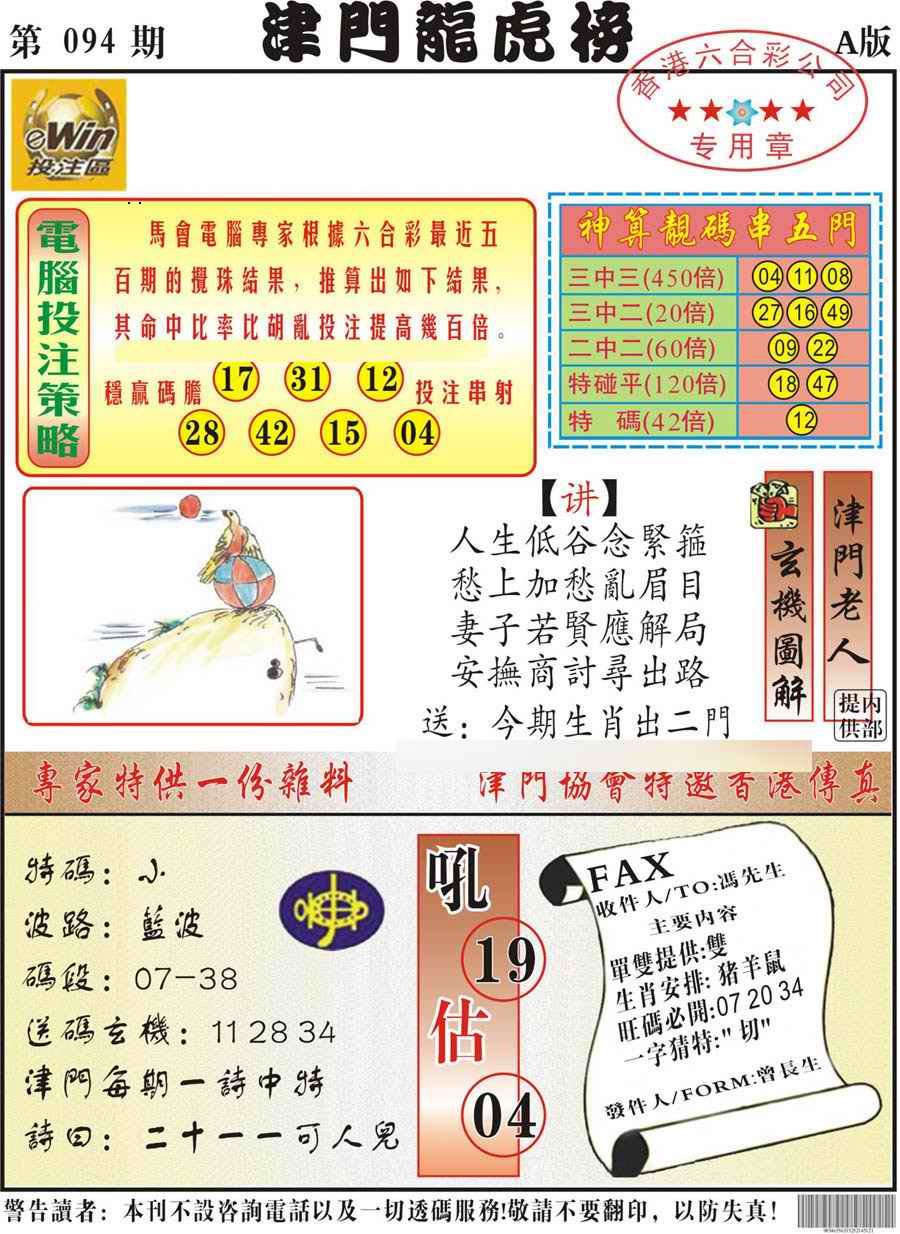 第 094 期
津門龍虎榜
A版
香港六合彩公司
专用章
eWin
投注區
電腦投注策略
馬會電腦專家根據六合彩最近五
百期的攪珠結果，推算出如下結果，
其命中比率比胡亂投注提高幾百倍。
穩贏碼膽 17 31 12 投注串射
28 42 15 04
神算靚碼串五門
三中三(450倍) 04 11 08
三中二(20倍) 27 16 49
二中二(60倍) 09 22
特碰平(120倍) 18 47
特 碼(42倍) 12
【讲】
人生低谷念緊箍
愁上加愁亂眉目
妻子若賢應解局
安撫商討尋出路
送：今期生肖出二門
玄機圖解
津門老人
内部提供
專家特供一份雜料
津門協會特邀香港傳真
特碼：小
波路：藍波
碼段：07-38
送碼玄機：11 28 34
津門每期一詩中特
詩曰：二十一一可人兒
吼
19
估
04
FAX
收件人/TO:馮先生
主要内容
單雙提供:雙
生肖安排:猪羊鼠
旺碼必開:07 20 34
一字猜特:"切"
發件人/FORM:曾長生
警告讀者：本刊不設咨詢電話以及一切透碼服務!敬請不要翻印，以防失真!